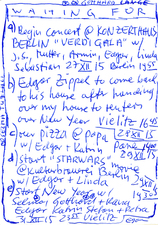 GOTTHARD LANGE
WAITING FOR
a) Begin Concert @ KONZERTHAUS
BERLIN "VERDI GALA" w/
J.S., Mutter, Armin, Edgar, Linda
Sebastian 27 XII 15 Berlin 1545
b) Edgar Zippel to come back
to his house after handing
over my house to renters
over New Year Vielitz 1645
c) our PIZZA @ papa 27 XII 15
w/ Edgar + Katrin pane 1400
d) start "STARWARS" 28 XII 15
@ Kulturbrauerei Berlin
w/ Edgar + Linda 29 XII 15
e) Start New Year
Selma, Gotthard + Kaiwa
Edgar Katrin Stefan + Petra
31 XII 15 2345 Vielitz